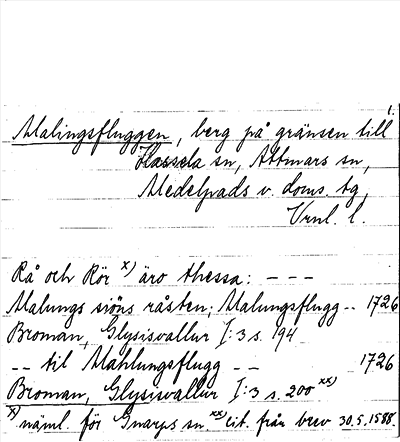 1.
Malingsfluggen, berg på gränsen till
Hassela sn, Attmars sn,
Medelpads v. doms. tg,
Vrnl. l.
Rå och Rör x) äro thessa: - - -
Malungs siöns råsten; Malungsflugg - - 1726
Broman, Glysisvallur I:3 s. 194
- - til Mahlungsflugg - - 1726
Broman, Glysisvallur I:3 s. 200 xx)
x) näml. för Gnarps sn. xx) cit. från brev 30.5.1588.